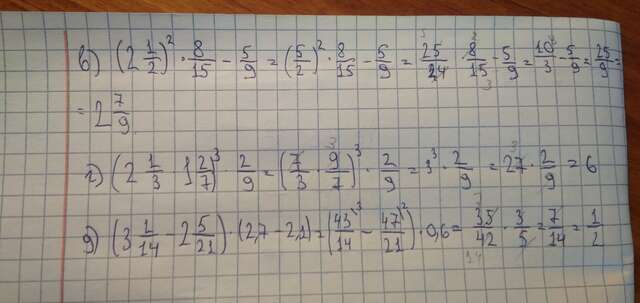 в) (2 1/2)² · 8/15 - 5/9 = (5/2)² · 8/15 - 5/9 = 25/4 · 8/15 - 5/9 = 10/3 - 5/9 = 25/9 =
= 2 7/9
г) (2 1/3 · 1 2/7)³ · 2/9 = (7/3 · 9/7)³ · 2/9 = 3³ · 2/9 = 27 · 2/9 = 6
д) (3 1/14 - 2 5/21) · (2,7 - 2,1) = (43/14 - 47/21) · 0,6 = 35/42 · 3/5 = 7/14 = 1/2